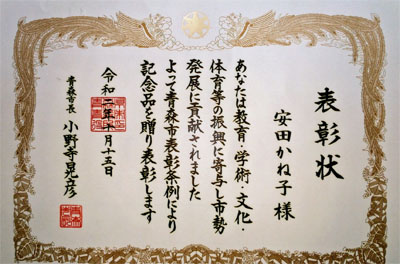 表彰状
安田かね子 様
あなたは教育・学術・文化・
体育等の振興に寄与し市勢
発展に貢献されました
よって青森市表彰条例により
記念品を贈り表彰します
令和二年十月十五日
青森市長 小野寺晃彦